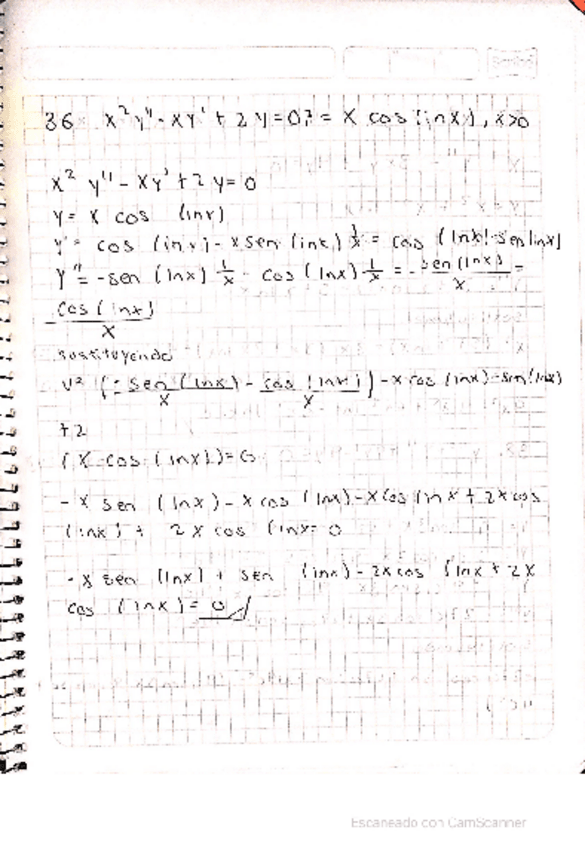 36 x² y'' - xy' + 2y = 0 ; = x cos (lnx), x>0
x² y'' - xy' + 2y = 0
y = x cos (lnx)
y' = cos (lnx) - x sen (lnx) 1/x = cos (lnx) - sen (lnx)
y'' = - sen (lnx) 1/x - cos (lnx) 1/x = - sen (lnx)/x =
- cos (lnx)/x
sustituyendo
(- sen (lnx)/x - cos (lnx)/x) - x cos (lnx) - sen (lnx)
+2
(x cos (lnx)) = 0
- x sen (lnx) - x cos (lnx) - x cos lnx + 2x cos
(lnx) + 2x cos (lnx = 0
- x sen (lnx) + sen (lnx) - 2x cos (lnx + 2x
cos (lnx) = 0
Escaneado con CamScanner